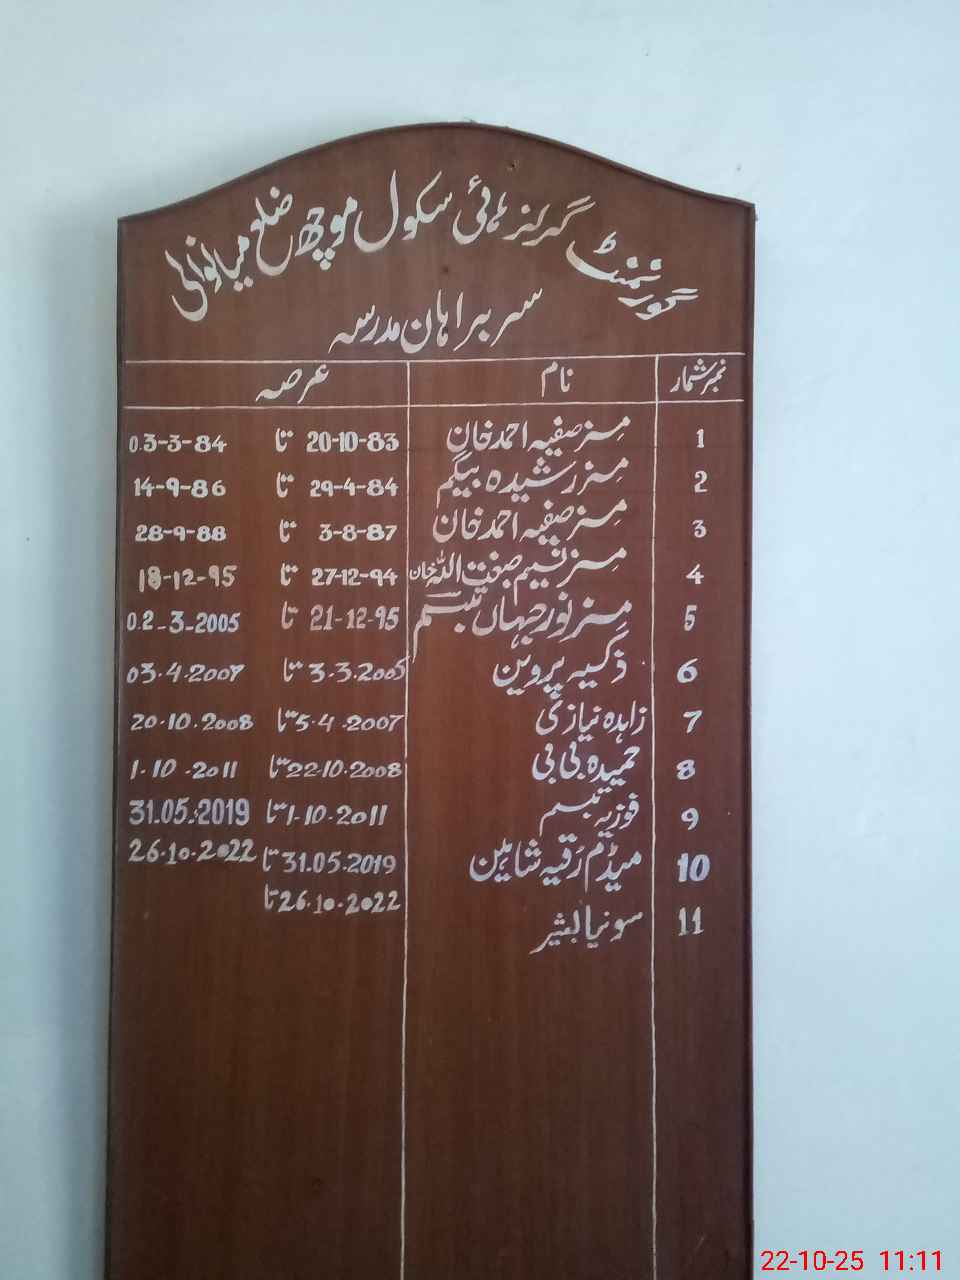 گورنمنٹ گرلز ہائی سکول موچھ ضلع میانوالی
سربراہان مدرسہ
نمبر شمار نام عرصہ
1 مسز صفیہ احمد خان 20-10-83 تا 03-3-84
2 مسز رشیدہ بیگم 29-4-84 تا 14-9-86
3 مسز صفیہ احمد خان 3-8-87 تا 28-9-88
4 مسز نسیم صبغت اللہ خان 27-12-94 تا 18-12-95
5 مسز نور جہاں تبسم 21-12-95 تا 02-3-2005
6 ذکیہ پروین 3.3.2005 تا 03.4.2007
7 زاہدہ نیازی 5.4.2007 تا 20.10.2008
8 حمیدہ بی بی 22.10.2008 تا 1.10.2011
9 فوزیہ تبسم 1.10.2011 تا 31.05.2019
10 میڈم رقیہ شاہین 31.05.2019 تا 26.10.2022
11 سونیا بشیر 26.10.2022 تا
22-10-25 11:11